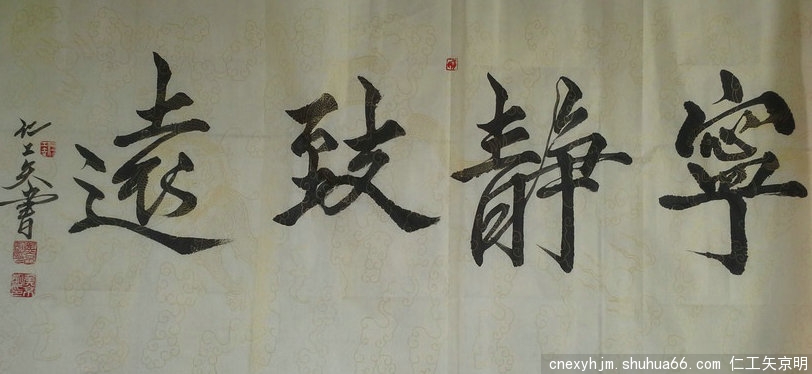 寧靜致遠
仁工矢書
cnexyhjm.shuhua66.com 仁工矢京明